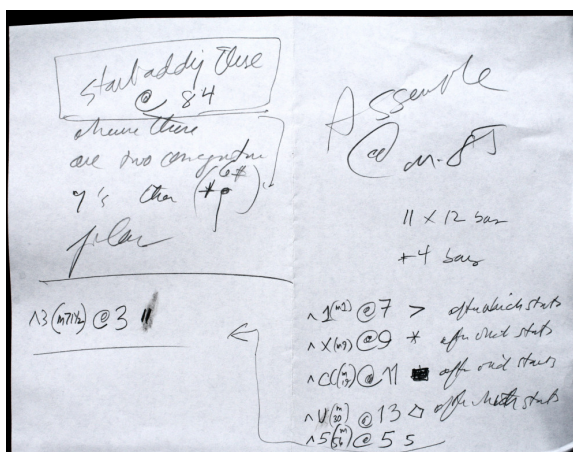 Start adding these
@ 84
where there
are two consecutive
7's then
Assemble
@ m. 85
11 x 12 bars
+4 bars
^3 (m71½) @ 3 "
^1 (m1) @ 7 > after which starts
^X (m9) @ 9 * after which starts
^CC (m) @ 11 ■ after which starts
^V (m 30) @ 13 after which starts
^5 (m 56) @ 5 5